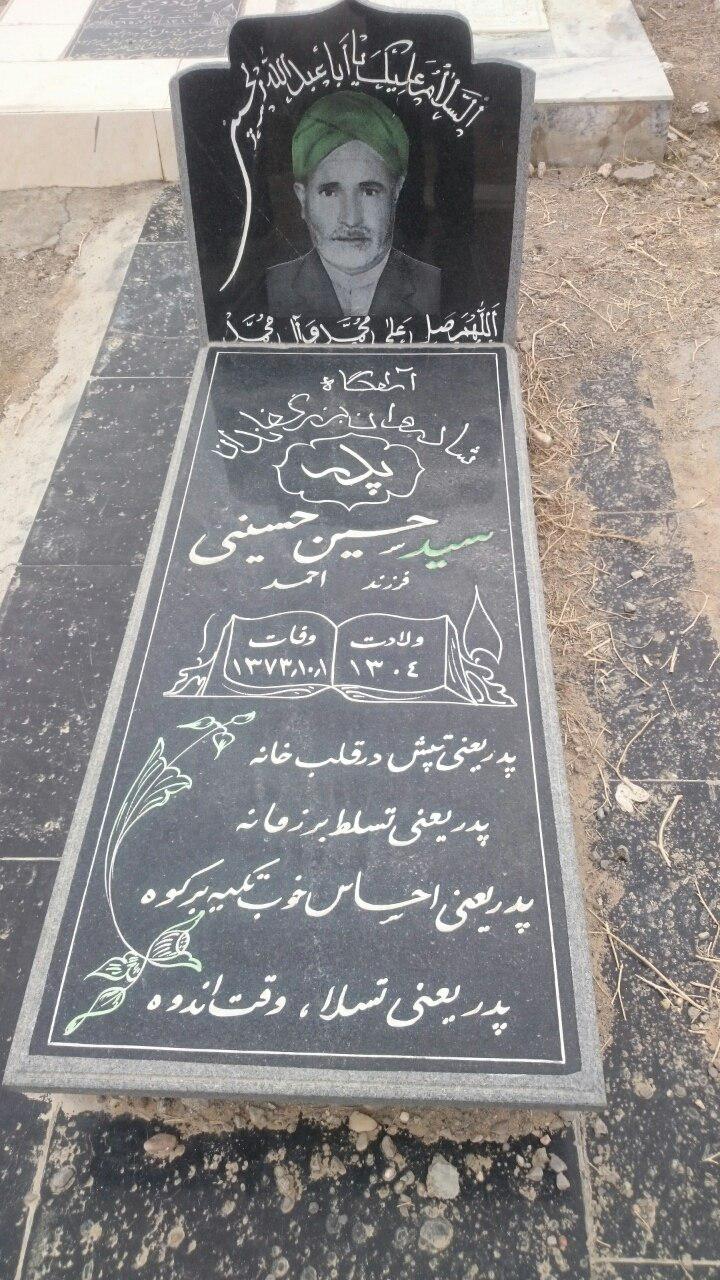 السلام علیک یا اباعبدالله الحسین
اللهم صل علی محمد و آل محمد
آرامگاه
شادروان بزرگ خاندان
پدر
سید حسین حسینی
فرزند احمد
ولادت
۱۳۰٤
وفات
۱۳۷۳٫۱۰٫۱
پدر یعنی تپش در قلب خانه
پدر یعنی تسلط بر زمانه
پدر یعنی احساس خوب تکیه بر کوه
پدر یعنی تسلا، وقت اندوه